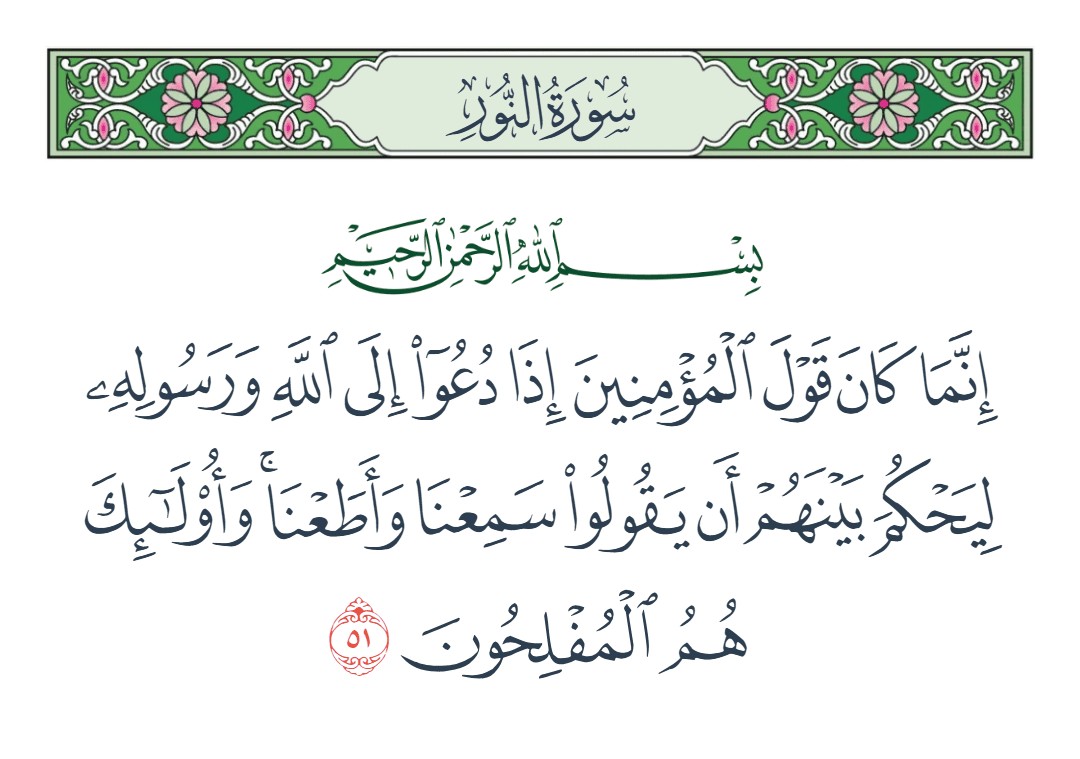 سُورَةُ النُّورِ
بِسْمِ ٱللَّهِ ٱلرَّحْمَٰنِ ٱلرَّحِيمِ
إِنَّمَا كَانَ قَوْلَ ٱلْمُؤْمِنِينَ إِذَا دُعُوٓا۟ إِلَى ٱللَّهِ وَرَسُولِهِۦ
لِيَحْكُمَ بَيْنَهُمْ أَن يَقُولُوا۟ سَمِعْنَا وَأَطَعْنَا ۚ وَأُو۟لَـٰٓئِكَ
هُمُ ٱلْمُفْلِحُونَ ٥١